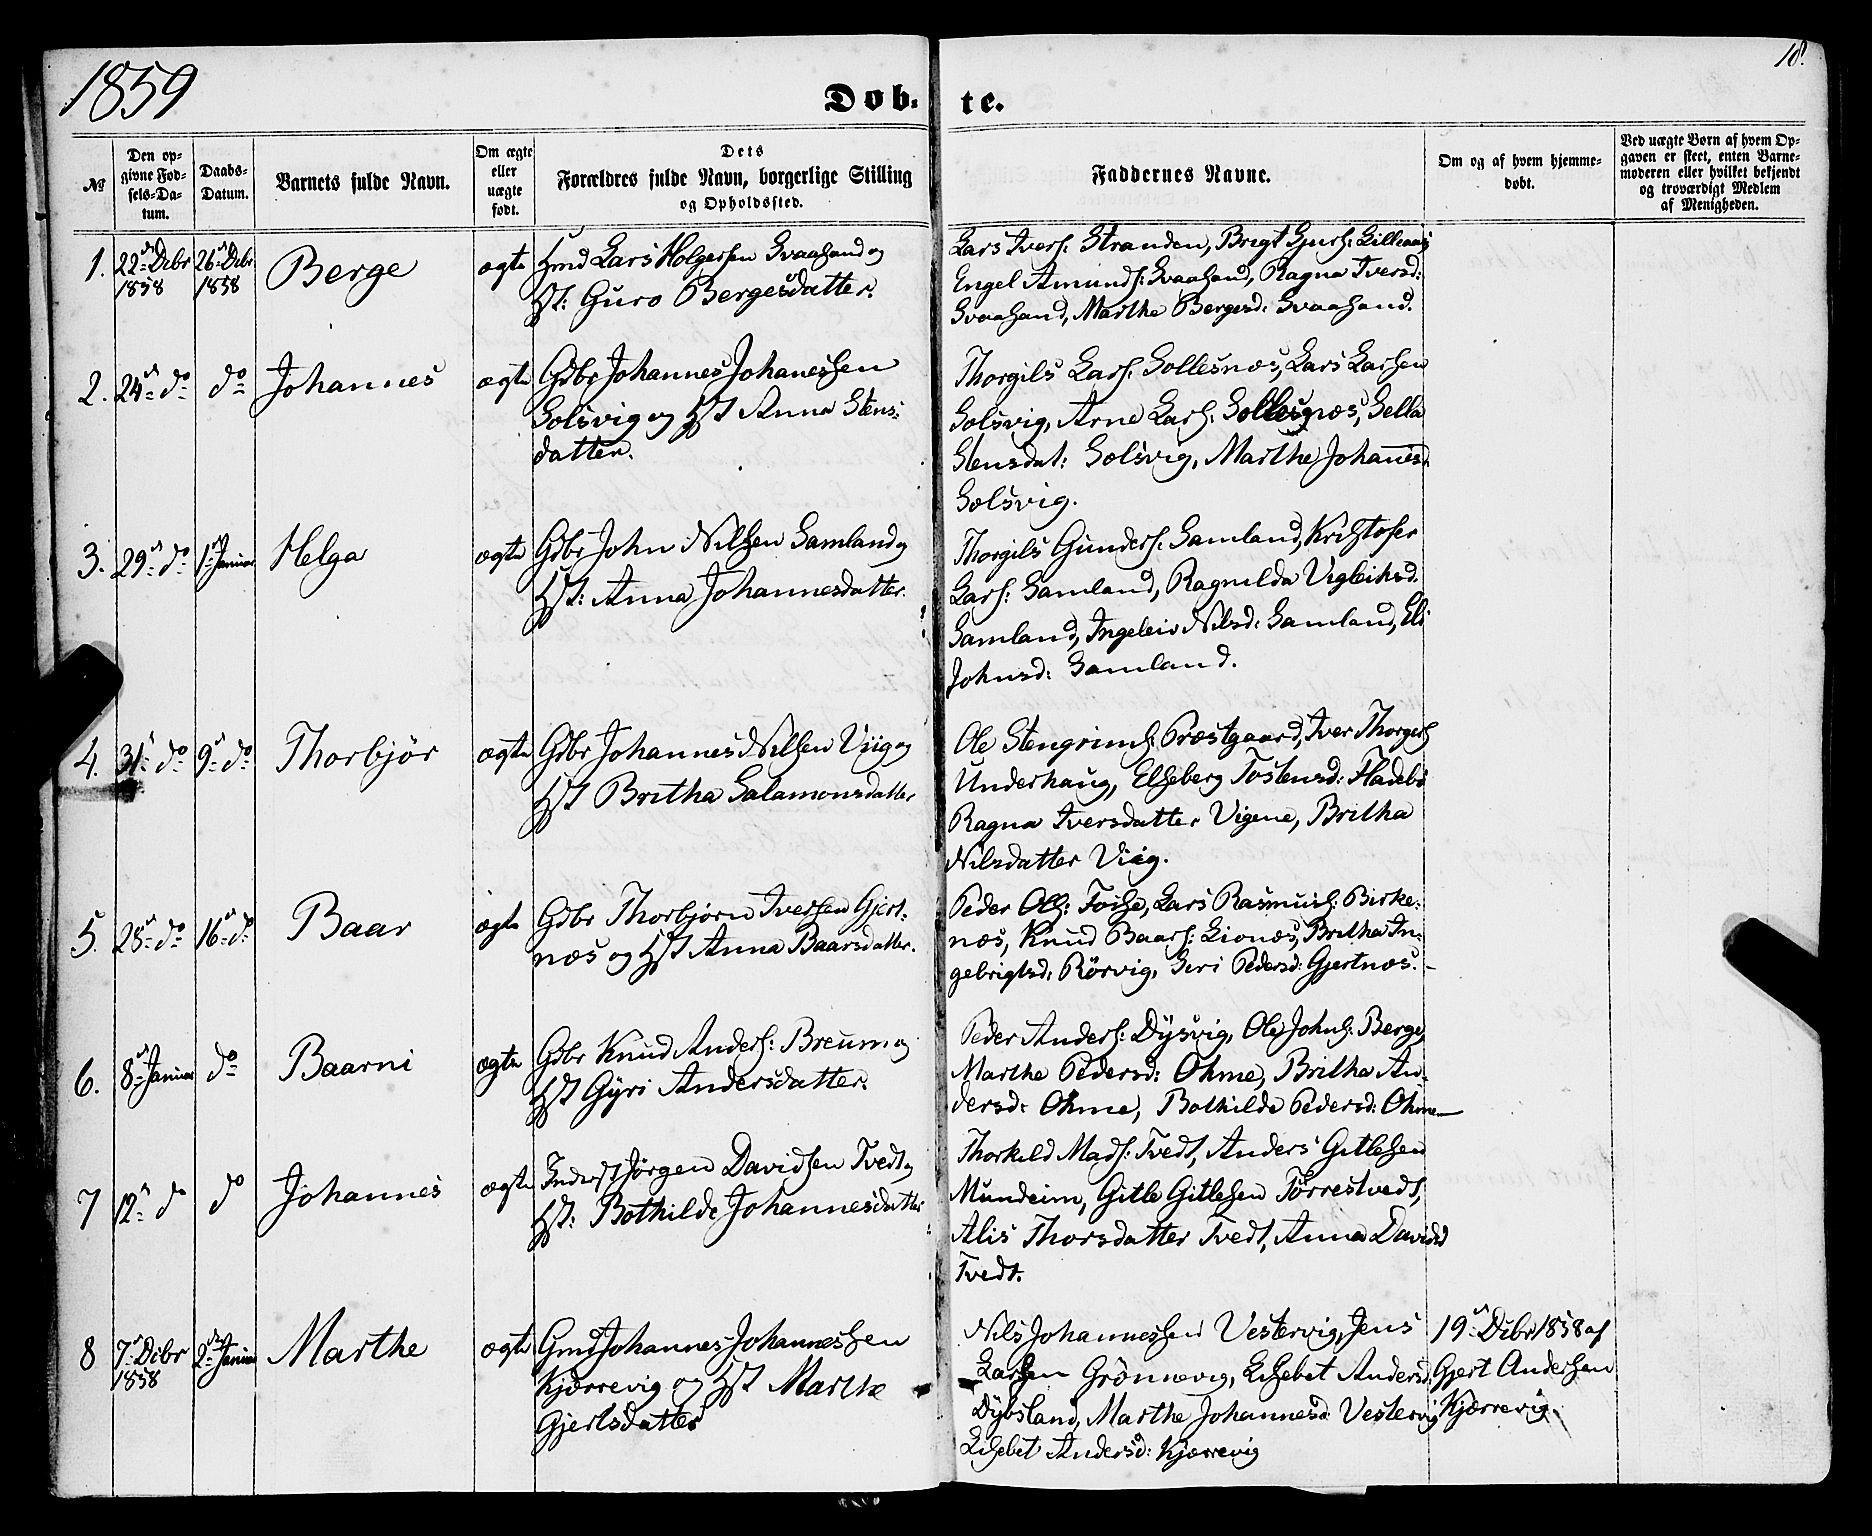 1859
18.
Døb-te.
No
Den opgivne Fødsels-Datum.
Daabs-Datum.
Barnets fulde Navn.
Om ægte eller uægte født.
Dets Forældres fulde Navn, borgerlige Stilling og Opholdssted.
Faddernes Navne.
Om og af hvem hjemmedøbt.
Ved uægte Børn af hvem Opgaven er skeet, enten Barnemoderen eller hvilket bekjendt og troværdigt Medlem af Menigheden.
1. 22de Debr 1858 26de Debr 1858 Berge ægte
Hmd Lars Holgersen Svaasand og
Hst: Guro Bergesdatter.
Lars Ivers: Stranden, Brigt Gjurs:
Engel Amunds: Svaasand, Ragna Iversd:
Svaasand, Marthe Bergesd: Svaasand.
2. 24de do do Johannes ægte
Gdbr Johannes Johanessen
Solsvig og Hst Anna Stens-
datter.
Thorgils Lars: Sollesnæs, Lars Larsen
Solsvig, Arne Lars: Sollesnæs, Sella
Stensdat: Solsvig, Marthe Johanesd:
Solsvig.
3. 29de do 1ste Januar Helga ægte
Gdbr John Nilsen Samland og
Hst: Anna Johannesdatter.
Thorgils Gunders: Samland, Kristofer
Lars: Samland, Ragnilda Vigleiksd.
Samland, Ingeleiv Nilsd: Samland, Eli
Johnsd: Samland.
4. 31te do 9de do Thorbjør ægte
Gdbr Johannes Nilsen Viig og
Hst Britha Salamonsdatter
Ole Stengrims: Præstgaard, Iver Thorgers
Underhaug, Elseberg Tostensd: Fladebø
Ragna Iversdatter Vigene, Britha
Nilsdatter Viig.
5. 28de do 16de do Baar ægte
Gdbr Thorbjørn Iversen Gjert-
næs og Hst Anna Baarsdatter.
Peder Ols: Foise, Lars Rasmus: Birke-
næs, Knud Baars: Lionæs, Britha In-
gebrigtsd: Rørvig, Seri Pedersd: Gjertnæs.
6. 8de Januar do Baarni ægte
Gdbr Knud Anders: Breum og
Hst Gyri Andersdatter.
Peder Anders: Dysvig, Ole Johns: Berge,
Marthe Pedersd: Ohme, Britha An-
dersd: Ohme, Bothilde Pedersd: Ohme
7 12te do do Johannes ægte
Inderst Jørgen Davidsen Tvedt og
Hst: Bothilde Johannesdatter
Thorkild Mads: Tvedt, Anders Gitlesen
Mundeim, Gitle Gitlesen Tørrestvedt,
Alis Thorsdatter Tvedt, Anna Davidsd
Tvedt.
8 7de Debr 1858 2den Januar Marthe ægte
Gmd Johannes Johannessen
Kjærrevig og Hst Marthe
Gjertsdatter
Nils Johannessen Vestervig, Jens
Larsen Grønnevig, Lisebet Andersd:
Dybsland, Marthe Johannesd: Vestervig
Lisebet Andersd: Kjærrevig
19de Debr 1858 af
Gjert Andersen
Kjærrevig.